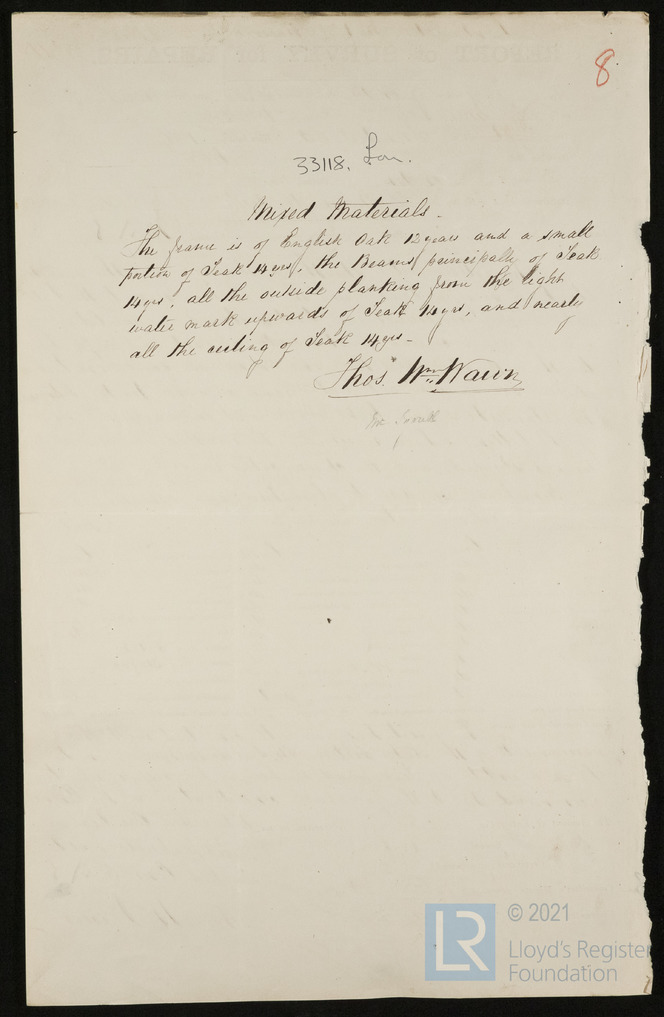 8
33118. Lon.
Mixed Materials.
The frame is of English Oak 12 years and a small
portion of Teak 14 yrs, the Beams principally of Teak
14 yrs, all the outside planking from the light
water mark upwards of Teak 14 yrs, and nearly
all the ceiling of Teak 14 yrs -
Thos. Wm. Wawn
© 2021
LR
Lloyd's Register
Foundation